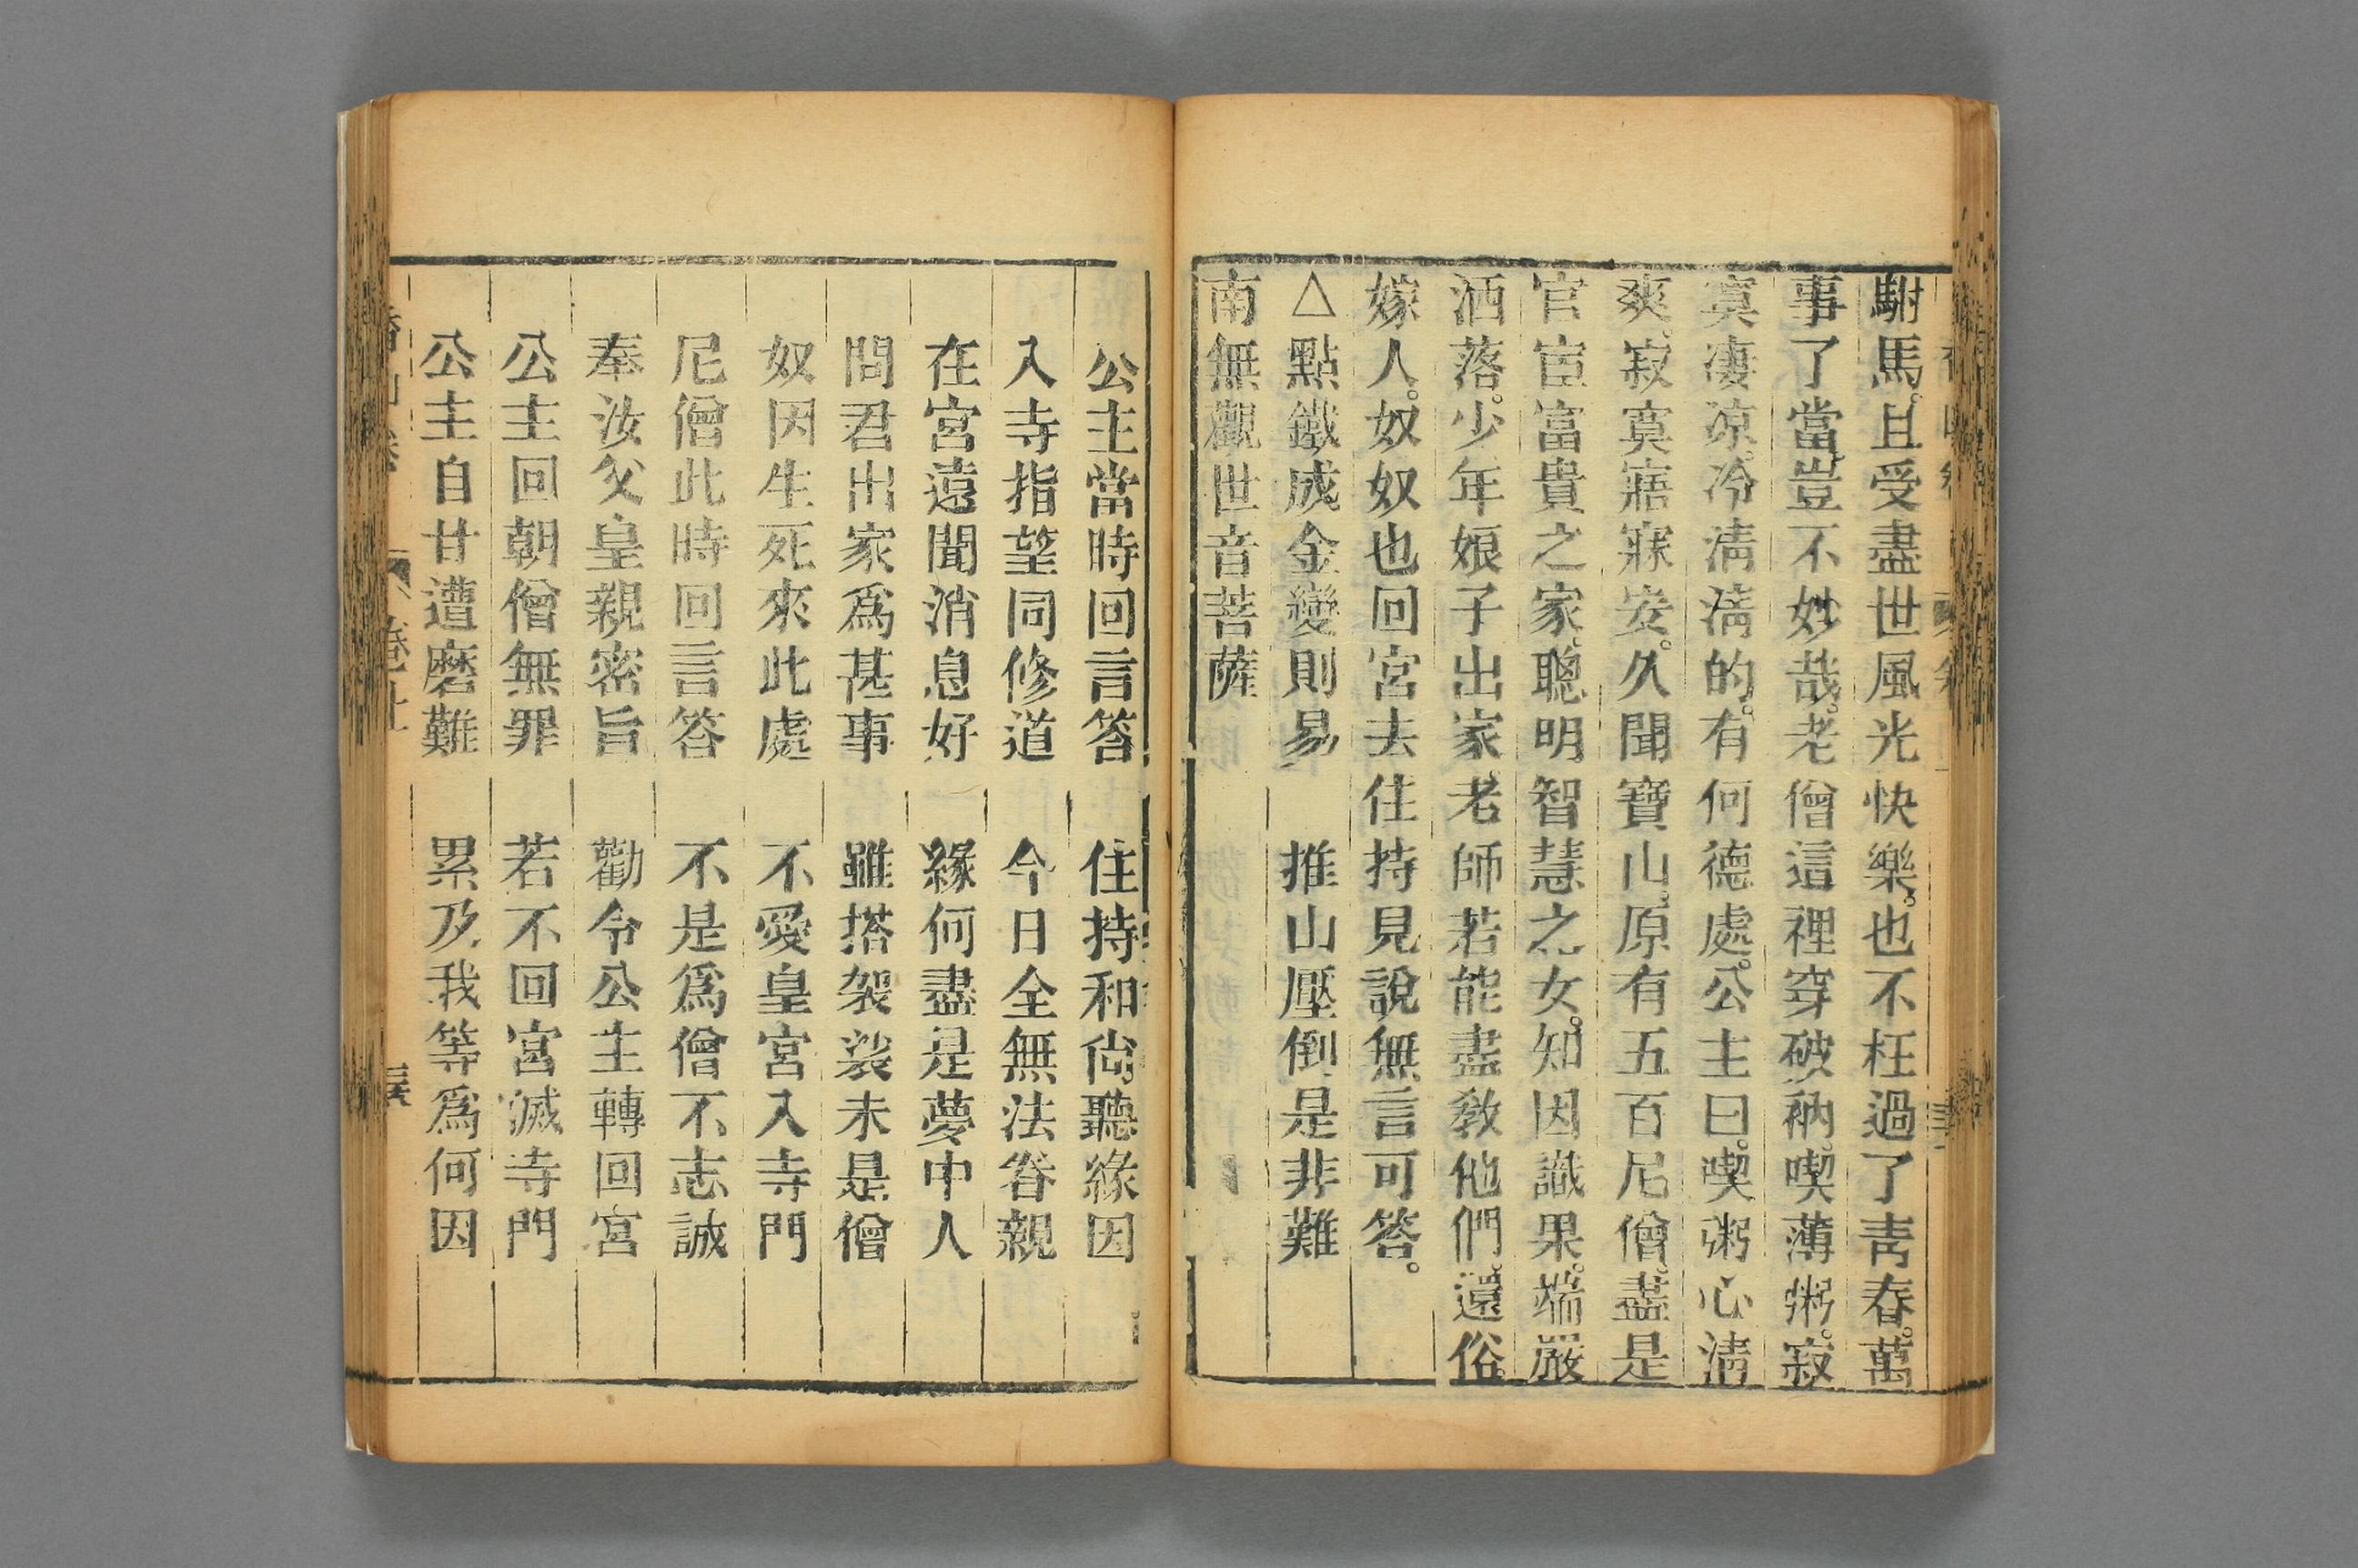 駙馬。且受盡世風光快樂。也不枉過了靑春。萬
事了當。豈不妙哉。老僧這裡穿破衲。喫薄粥。寂
寞凄凉。冷淸淸的。有何德處。公主曰。喫粥心淸
爽。寂寞寤寐安。久聞寶山。原有五百尼僧。盡是
官宦富貴之家。聰明智慧之女。知因識果。端嚴
洒落。少年娘子出家。老師若能盡敎他們。還俗。
嫁人。奴奴也回宮去住持見說無言可答。
△點鐵成金變則易　推山壓倒是非難
南無觀世音菩薩
公主當時回言答　住持和尙聽緣因
入寺指望同修道　今日全無法眷親
在宮遠聞消息好　緣何盡是夢中人
問君出家爲甚事　雖搭袈裟未是僧
奴因生死來此處　不愛皇宮入寺門
尼僧此時回言答　不是爲僧不志誠
奉汝父皇親密旨　勸令公主轉回宮
公主回朝僧無罪　若不回宮滅寺門
公主自甘遭磨難　累及我等爲何因